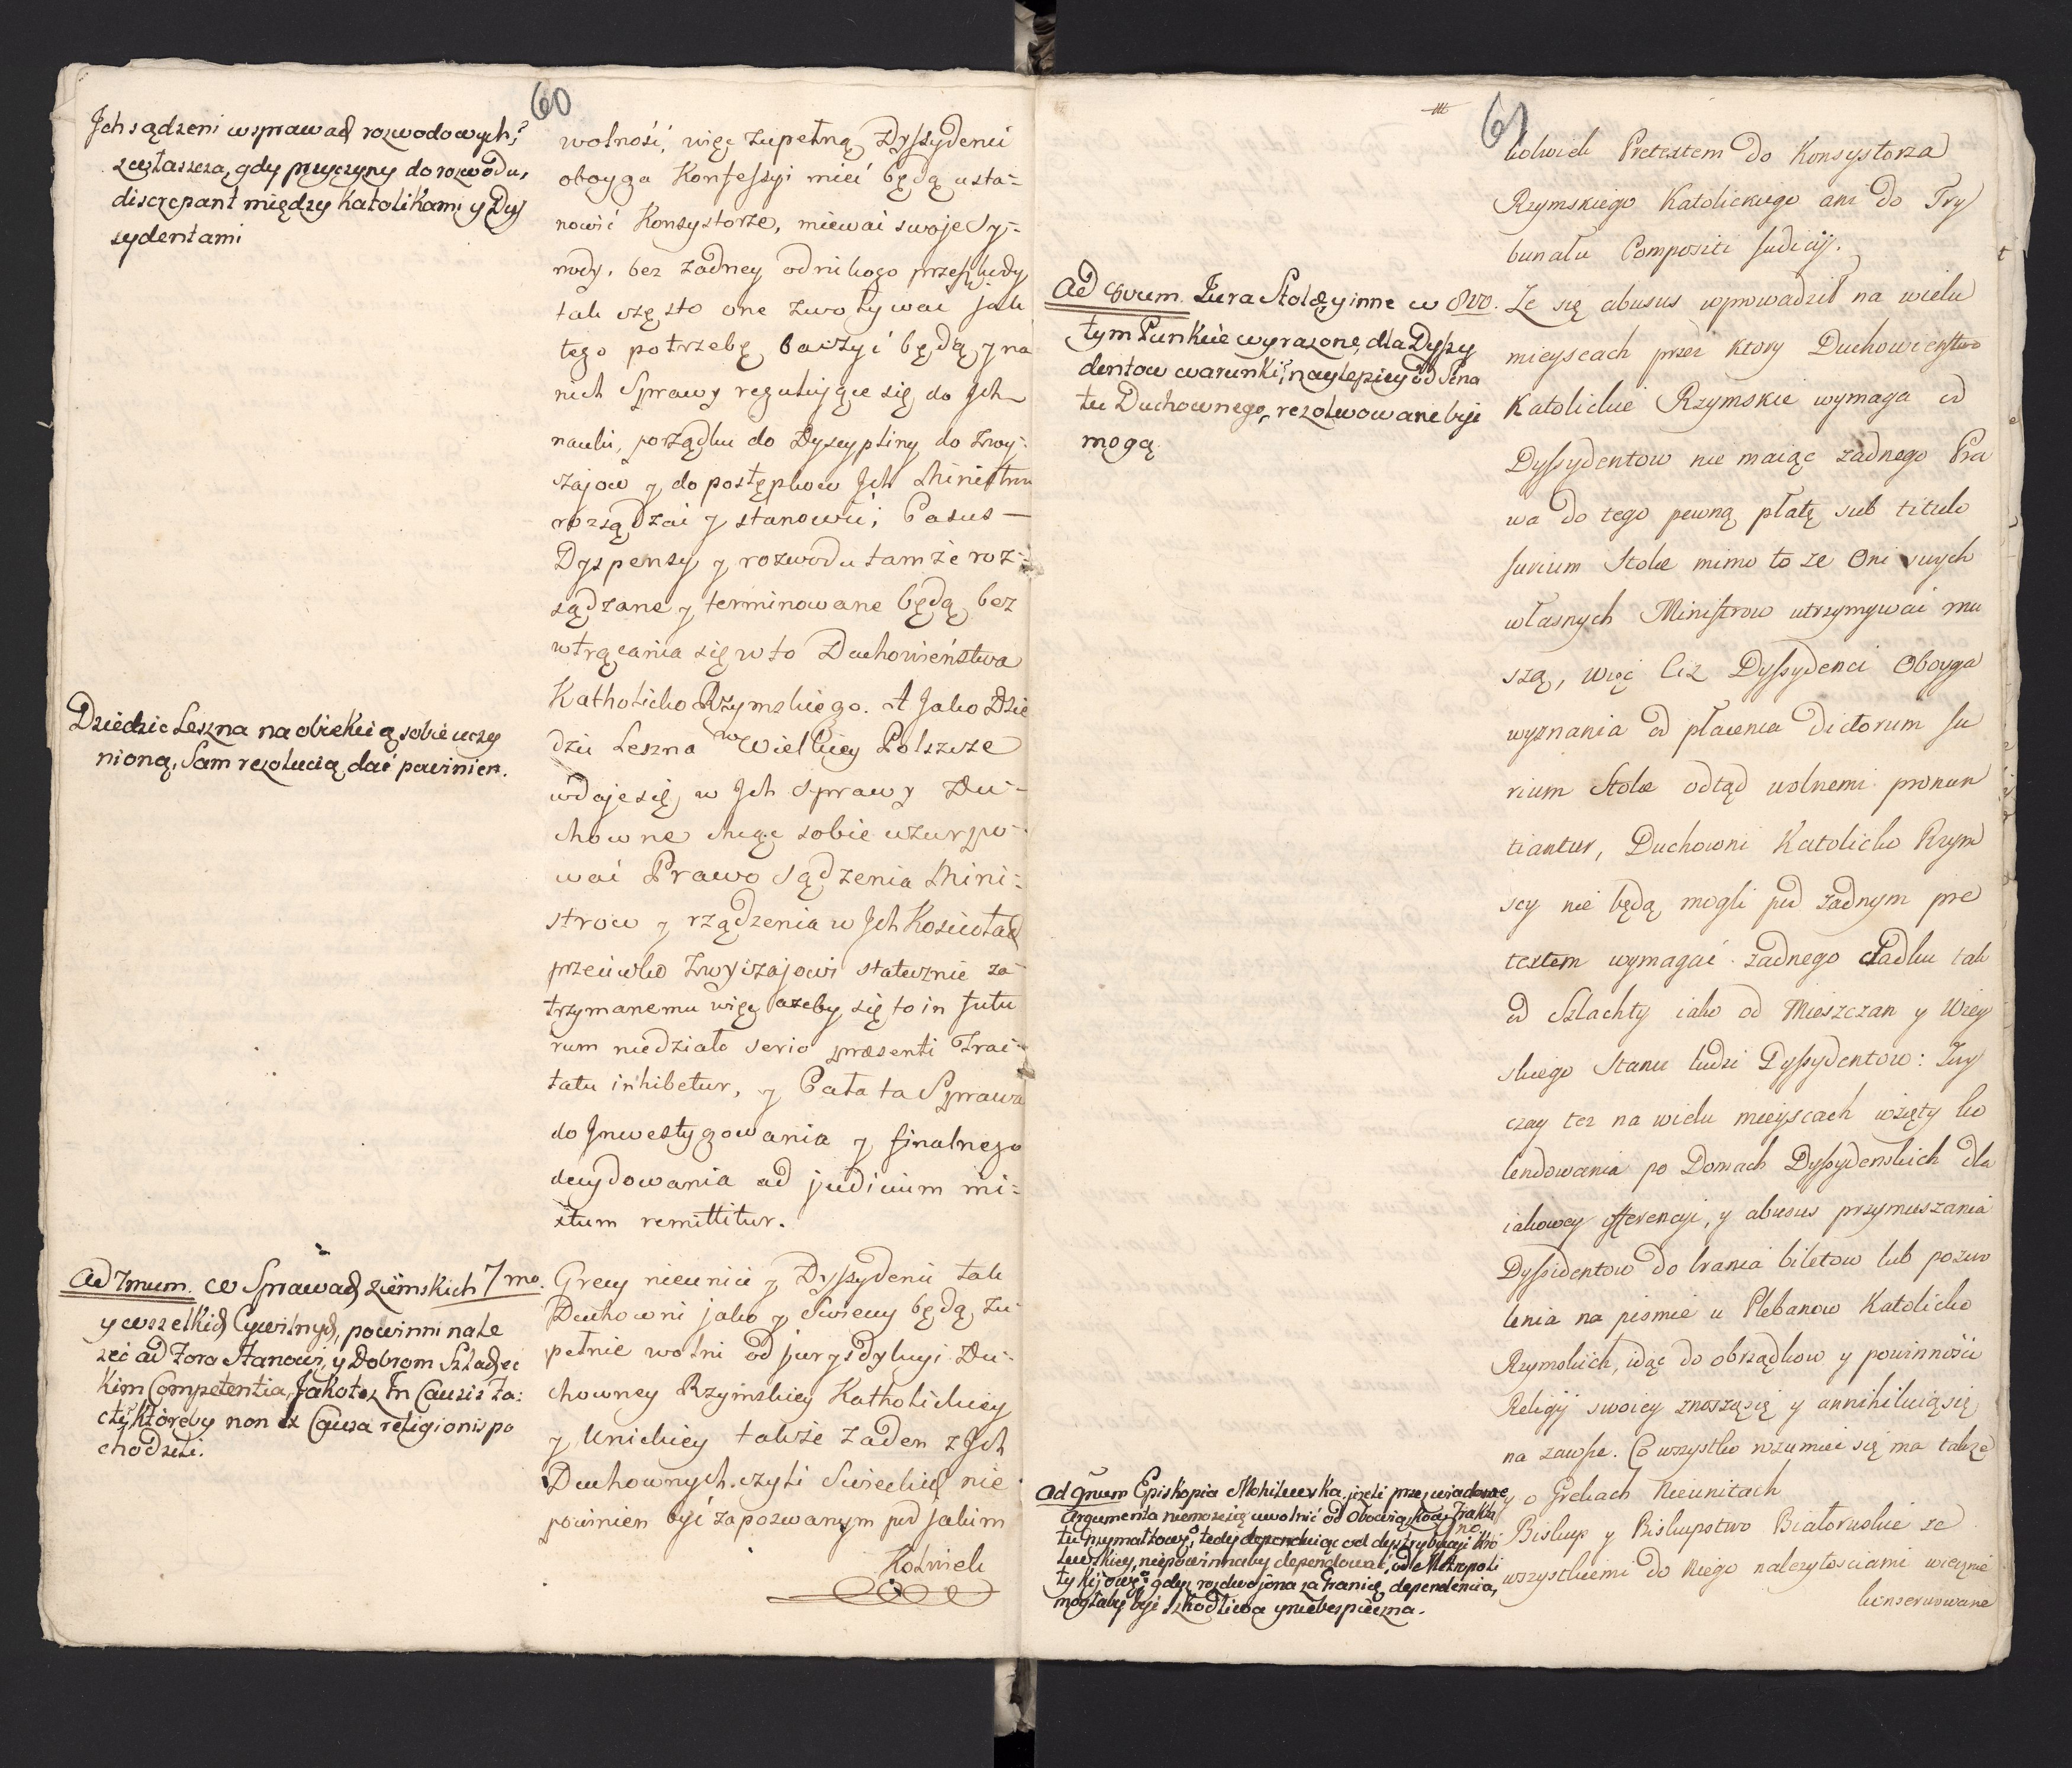 60
Jch sądzeni w sprawach rozwodowych,
zwłaszcza, gdy przyczyny do rozwodu,
discrepant między Katolikami y Dys
sydentami
wolność, więc zupełną Dyssydenci
oboyga Konfessyi mieć będą usta-
nowić Konsystorze, miewać swoje Sy-
nody, bez żadney od nikogo przeszkody
tak często one zwoływać jak
tego potrzebę baczyć będą, y na
nich Sprawy regulujące się do Jch
nauki, porządku do Dyscypliny do Zwy-
czajow y do postępkow Jch Ministrow
rozsądzać y stanowić; Casus
Dyspensy y rozwodu tamże roz-
sądzane y terminowane będą bez
wtrącania się w to Duchowieństwa
Katholicko Rzymskiego. A Jako Dzie
Dziedzic Leszna na obiekcią sobie uczy
nioną, Sam rezolucią dać powinien.
dzic Leszna w Wielkiey Polszcze
wdaje się w Jch Sprawy Du-
chowne chcąc sobie uzurpo-
wać Prawo Sądzenia Mini-
strow y rządzenia w Jch Kosciołach
przeciwko Zwyczajowi statecznie za-
trzymanemu więc ażeby się to in futu
rum niedziało serio præsenti Trac-
tatu inhibetur, y Cała ta Sprawa
do Jnwestygowania y finalnego
decydowania ad judicium mi-
xtum remittitur.
Ad 7mum. w Sprawach ziemskich
y wszelkich Cywilnych, powinni nale
żeć ad Fora Stanowi, y Dobrom Szlachec
kim Competentia, Jakoteż Jn Causis Fa-
cti, Któreby non ex Causa religionis po
chodziły.
7mo. Grecy nieunici y Dyssydenci tak
Duchowni jako y Swieccy będą zu-
pełnie wolni od jurysdykcyi Du-
chowney Rzymskiey Katholickiey
y Unickiey także żaden z Jch
Duchownych czyli Swieckich nie
powinien być zapozwanym pod jakim
Kolwiek
61
kolwiek Pretextem do Konsystorza
Rzymskiego Katolickiego ani do Try
bunału Compositi Judicij.
Ad 8vum. Jura Stolæ, y inne w
tym Punkcie wyrażone, dla Dyssy
dentow warunki, naylepiey od Sena
tu Duchownego, rezolwowane być
mogą.
8vo. Ze się abusus wprowadził na wielu
mieyscach przez ktory Duchowieństwo
Katolickie Rzymskie wymaga od
Dyssydentow nie maiąc żadnego Pra
wa do tego pewną płatę sub titulo
Jurium Stolæ mimo to ze Oni swych
własnych Ministrow utrzymywać mu
szą, więc Ciż Dyssydenci Oboyga
wyznania od płacenia dictorum Ju
rium Stolæ odtąd wolnemi pronun
tiantur, Duchowni Katolicko Rzym
scy nie będą mogli pod żadnym pre
textem wymagać żadnego datku tak
od Szlachty iako od Mieszczan y Wiey
skiego Stanu ludzi Dyssydentow: Zwy
czay tez na wielu mieyscach wzięty ko
lendowania po Domach Dyssydenskich dla
iakowey offerencyi, y abusus przymuszania
Dyssidentow do brania biletow lub pozwo
lenia na pismie u Plebanow Katolicko
Rzymskich, idąc do obrządkow y powinności
Religij swoiey znoszą się y annihiluią się
na zawsze. Co wszystko rozumieć się ma także
y o Grekach Nieunitach
Ad 9num Episkopia Mohilewska, jeżeli przez wiadome
Argumenta niemoże się uwolnić od Obowiązkow Trakta
tu Grymałtowo, tedy dependuiąc od dystrybucyi Kró
lewskiey, niepowinnaby dependować, od Metropoli
ty Kijows: gdyż rozdwojona za Granicę dependencia,
mogłaby być szkodliwa y niebespieczna.
9no. Biskup y Biskupstwo Białoruskie ze
wszystkiemi do niego należytościami wiecznie
konserwowane